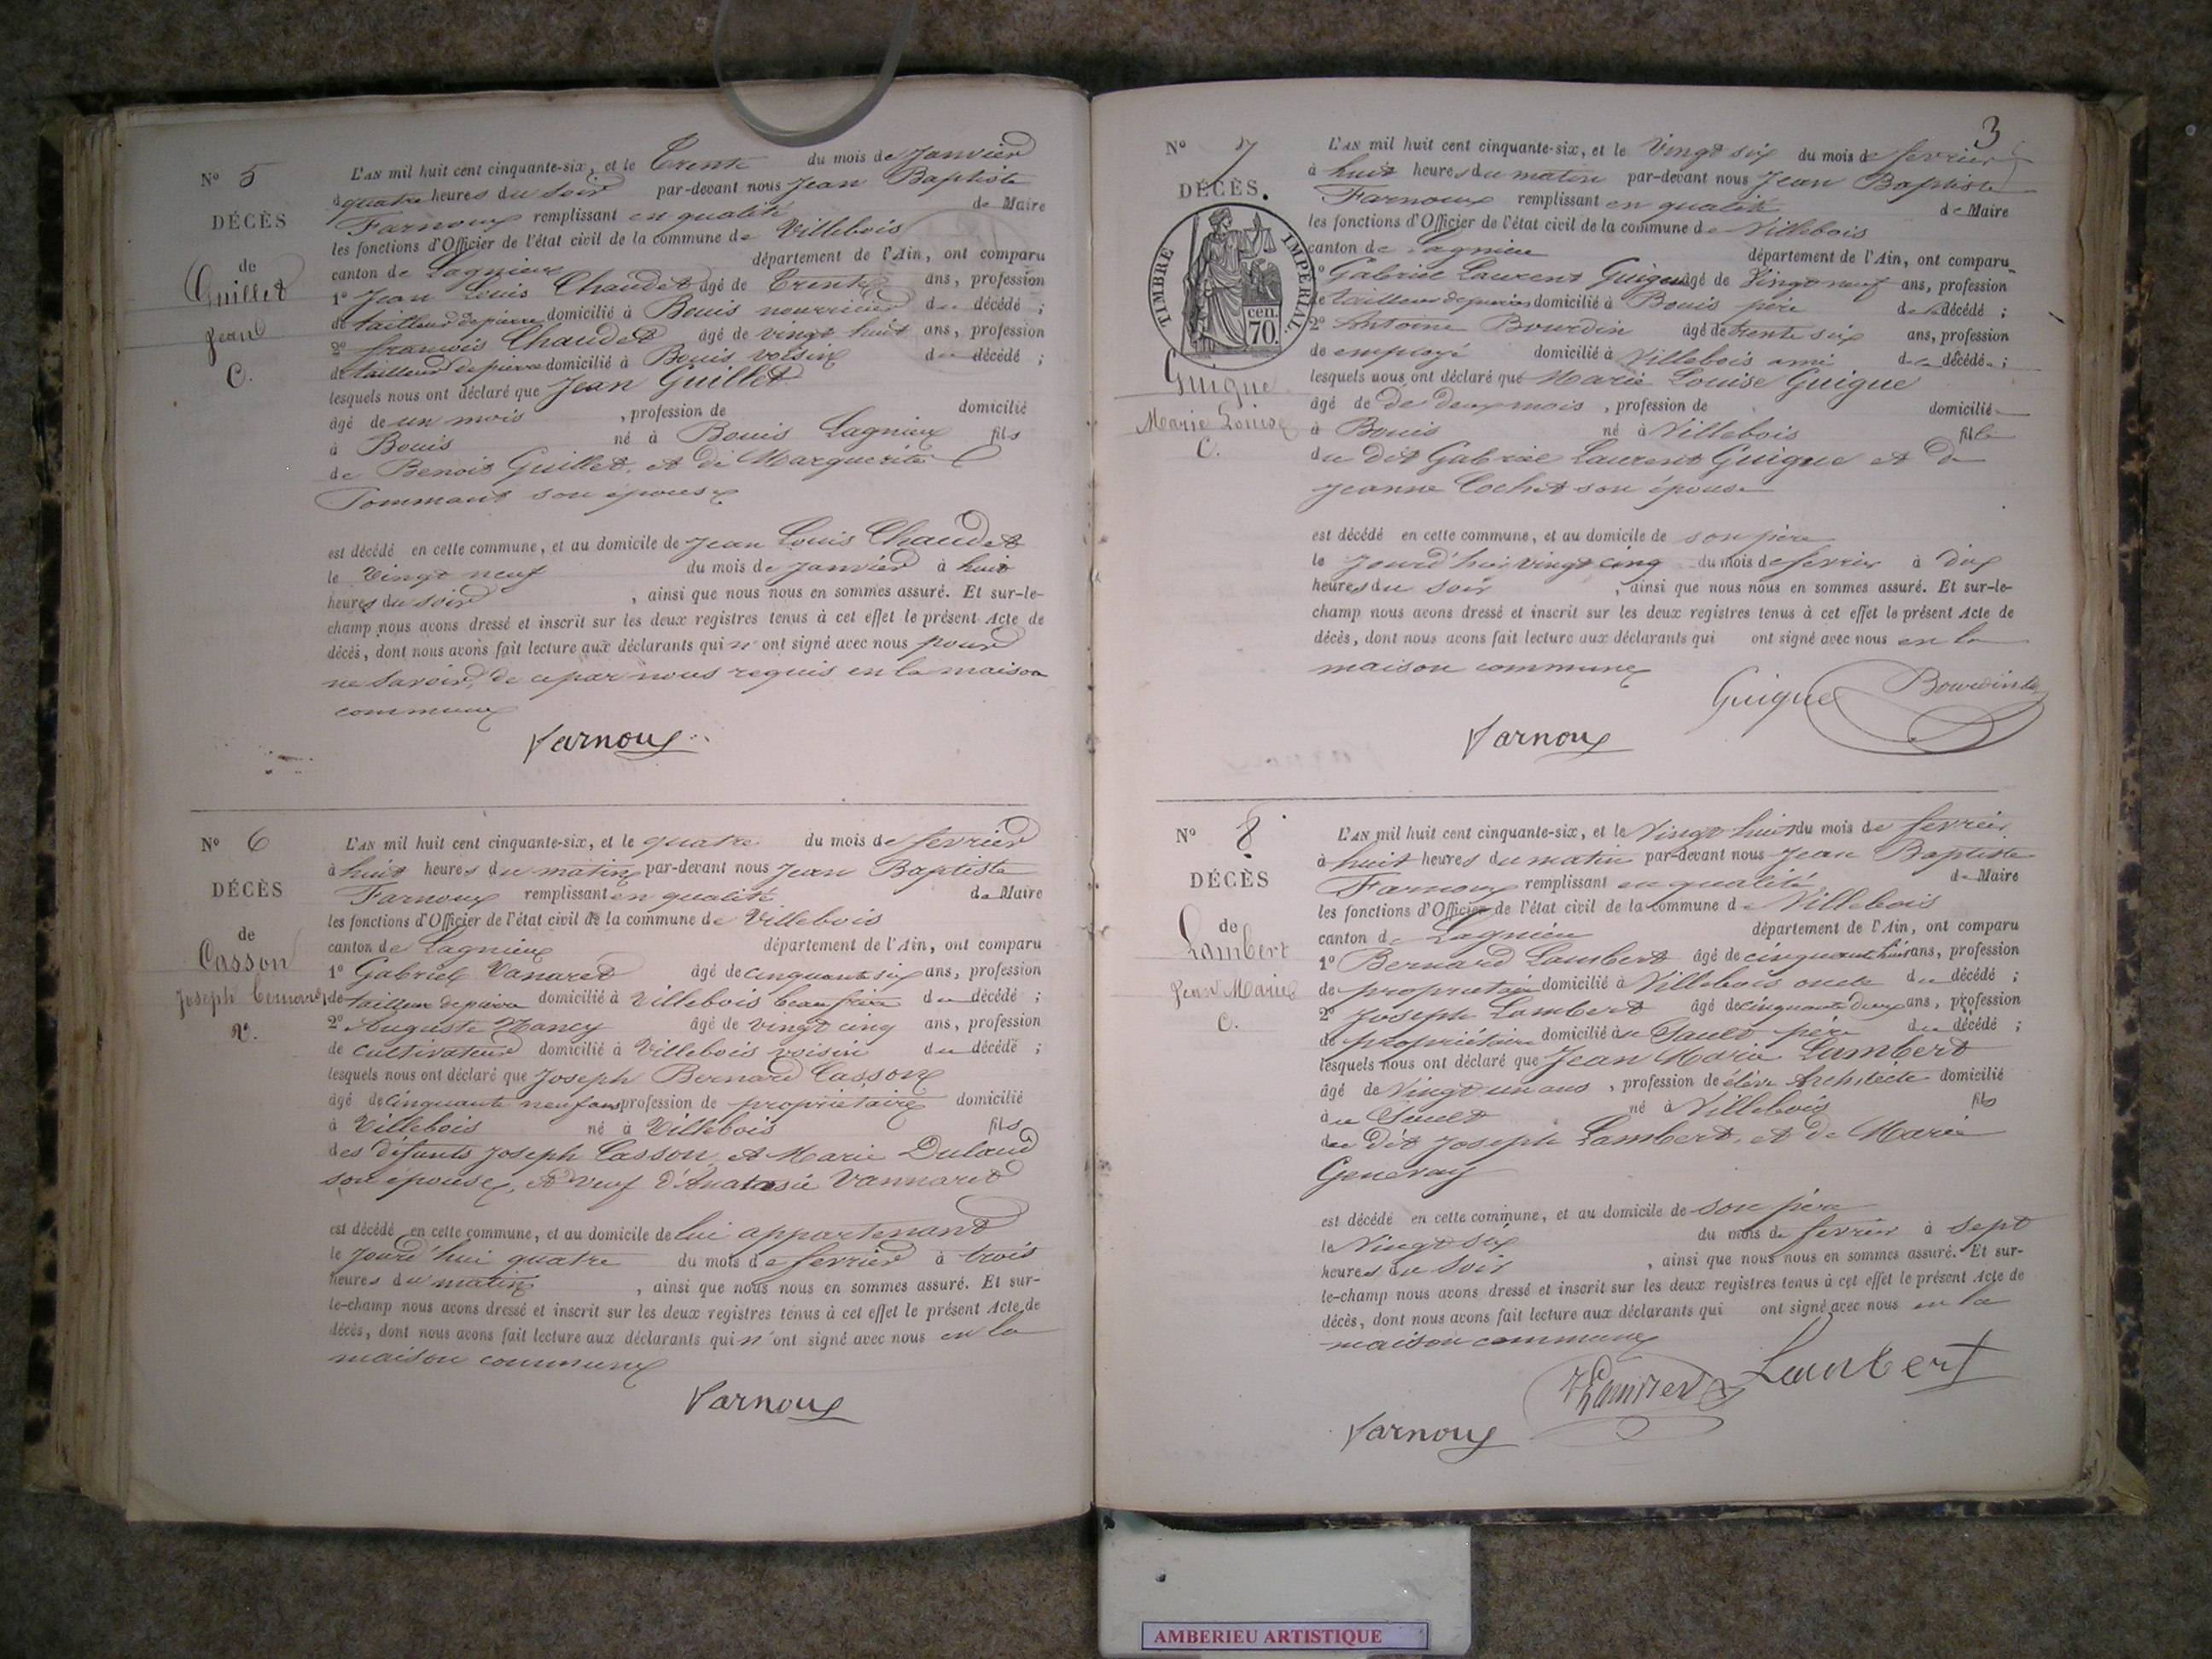 N° 5
DÉCÈS
de
Guillet
Jean
C.
L'AN mil huit cent cinquante-six, et le Trente du mois de Janvier
à quatre heures du soir par-devant nous Jean Baptiste
Farnoux remplissant en qualité de Maire
les fonctions d'Officier de l'état civil de la commune de Villebois
canton de Lagnieu département de l'Ain, ont comparu
1° Jean Louis Chaudet âgé de Trente ans, profession
de tailleur de pierre domicilié à Bouis nourricier du décédé ;
2° françois Chaudet âgé de vingt huit ans, profession
de tailleur de pierre domicilié à Bouis voisin du décédé ;
lesquels nous ont déclaré que Jean Guillet
âgé de un mois , profession de domicilié
à Bouis né à Bouis Lagnieu fils
de Benoit Guillet, et de Marguerite
Tommant son épouse
est décédé en cette commune, et au domicile de Jean Louis Chaudet
le Vingt neuf du mois de Janvier à huit
heures du soir , ainsi que nous nous en sommes assuré. Et sur-le-
champ nous avons dressé et inscrit sur les deux registres tenus à cet effet le présent Acte de
décès, dont nous avons fait lecture aux déclarants qui n'ont signé avec nous pour
ne savoir, de ce par nous requis en la maison
commune
Farnoux
N° 6
DÉCÈS
de
Casson
Joseph Bernard
V.
L'AN mil huit cent cinquante-six, et le quatre du mois de fevrier
à huit heures du matin par-devant nous Jean Baptiste
Farnoux remplissant en qualité de Maire
les fonctions d'Officier de l'état civil de la commune de Villebois
canton de Lagnieu département de l'Ain, ont comparu
1° Gabriel Vanaret âgé de cinquante six ans, profession
de tailleur de pierre domicilié à Villebois beau frère du décédé ;
2° Auguste Nancy âgé de vingt cinq ans, profession
de cultivateur domicilié à Villebois voisin du décédé ;
lesquels nous ont déclaré que Joseph Bernard Casson
âgé de cinquante neuf ans profession de propriétaire domicilié
à Villebois né à Villebois fils
des défunts Joseph Casson, et Marie Dulaud
son épouse, et veuf d'Anatasie Vannaret
est décédé en cette commune, et au domicile de lui appartenant
le Jourd'hui quatre du mois de fevrier à trois
heures du matin , ainsi que nous nous en sommes assuré. Et sur-
le-champ nous avons dressé et inscrit sur les deux registres tenus à cet effet le présent Acte de
décès, dont nous avons fait lecture aux déclarants qui n'ont signé avec nous en la
maison commune
Farnoux
3
N° 7
DÉCÈS.
TIMBRE IMPÉRIAL.
70. cen.
Guigue
Marie Louise
C.
L'AN mil huit cent cinquante-six, et le Vingt six du mois de fevrier
à huit heures du matin par-devant nous Jean Baptiste
Farnoux remplissant en qualité de Maire
les fonctions d'Officier de l'état civil de la commune de Villebois
canton de Lagnieu département de l'Ain, ont comparu
1° Gabriel Laurent Guigue âgé de Vingt neuf ans, profession
de tailleur de pierre domicilié à Bouis père de la décédé ;
2° Antoine Bourdin âgé de trente six ans, profession
de employé domicilié à Villebois ami de la décédé ;
lesquels nous ont déclaré que Marie Louise Guigue
âgé de de deux mois , profession de domicilié
à Bouis né à Villebois fille
du dit Gabriel Laurent Guigue et de
Jeanne Cochet son épouse
est décédé en cette commune, et au domicile de son père
le Jourd'hier vingt cinq du mois de fevrier à dix
heures du soir , ainsi que nous nous en sommes assuré. Et sur-le-
champ nous avons dressé et inscrit sur les deux registres tenus à cet effet le présent Acte de
décès, dont nous avons fait lecture aux déclarants qui ont signé avec nous en la
maison commune
Guigue Bourdin
Farnoux
N° 8
DÉCÈS
de
Lambert
Jean Marie
C.
L'AN mil huit cent cinquante-six, et le Vingt huit du mois de fevrier
à huit heures du matin par-devant nous Jean Baptiste
Farnoux remplissant en qualité de Maire
les fonctions d'Officier de l'état civil de la commune de Villebois
canton de Lagnieu département de l'Ain, ont comparu
1° Bernard Lambert âgé de cinquante huit ans, profession
de propriétaire domicilié à Villebois oncle du décédé ;
2° Joseph Lambert âgé de cinquante deux ans, profession
de propriétaire domicilié à au Sault père du décédé ;
lesquels nous ont déclaré que Jean Marie Lambert
âgé de Vingt un ans , profession de élève Architecte domicilié
à au Sault né à Villebois fils
du dit Joseph Lambert, et de Marie
Genevay
est décédé en cette commune, et au domicile de son père
le Vingt six du mois de fevrier à sept
heures du soir , ainsi que nous nous en sommes assuré. Et sur-
le-champ nous avons dressé et inscrit sur les deux registres tenus à cet effet le présent Acte de
décès, dont nous avons fait lecture aux déclarants qui ont signé avec nous en la
maison commune
Lambert
Farnoux
AMBERIEU ARTISTIQUE